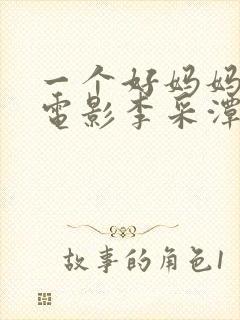 一个好妈妈
電影李采潭
故事的角色1